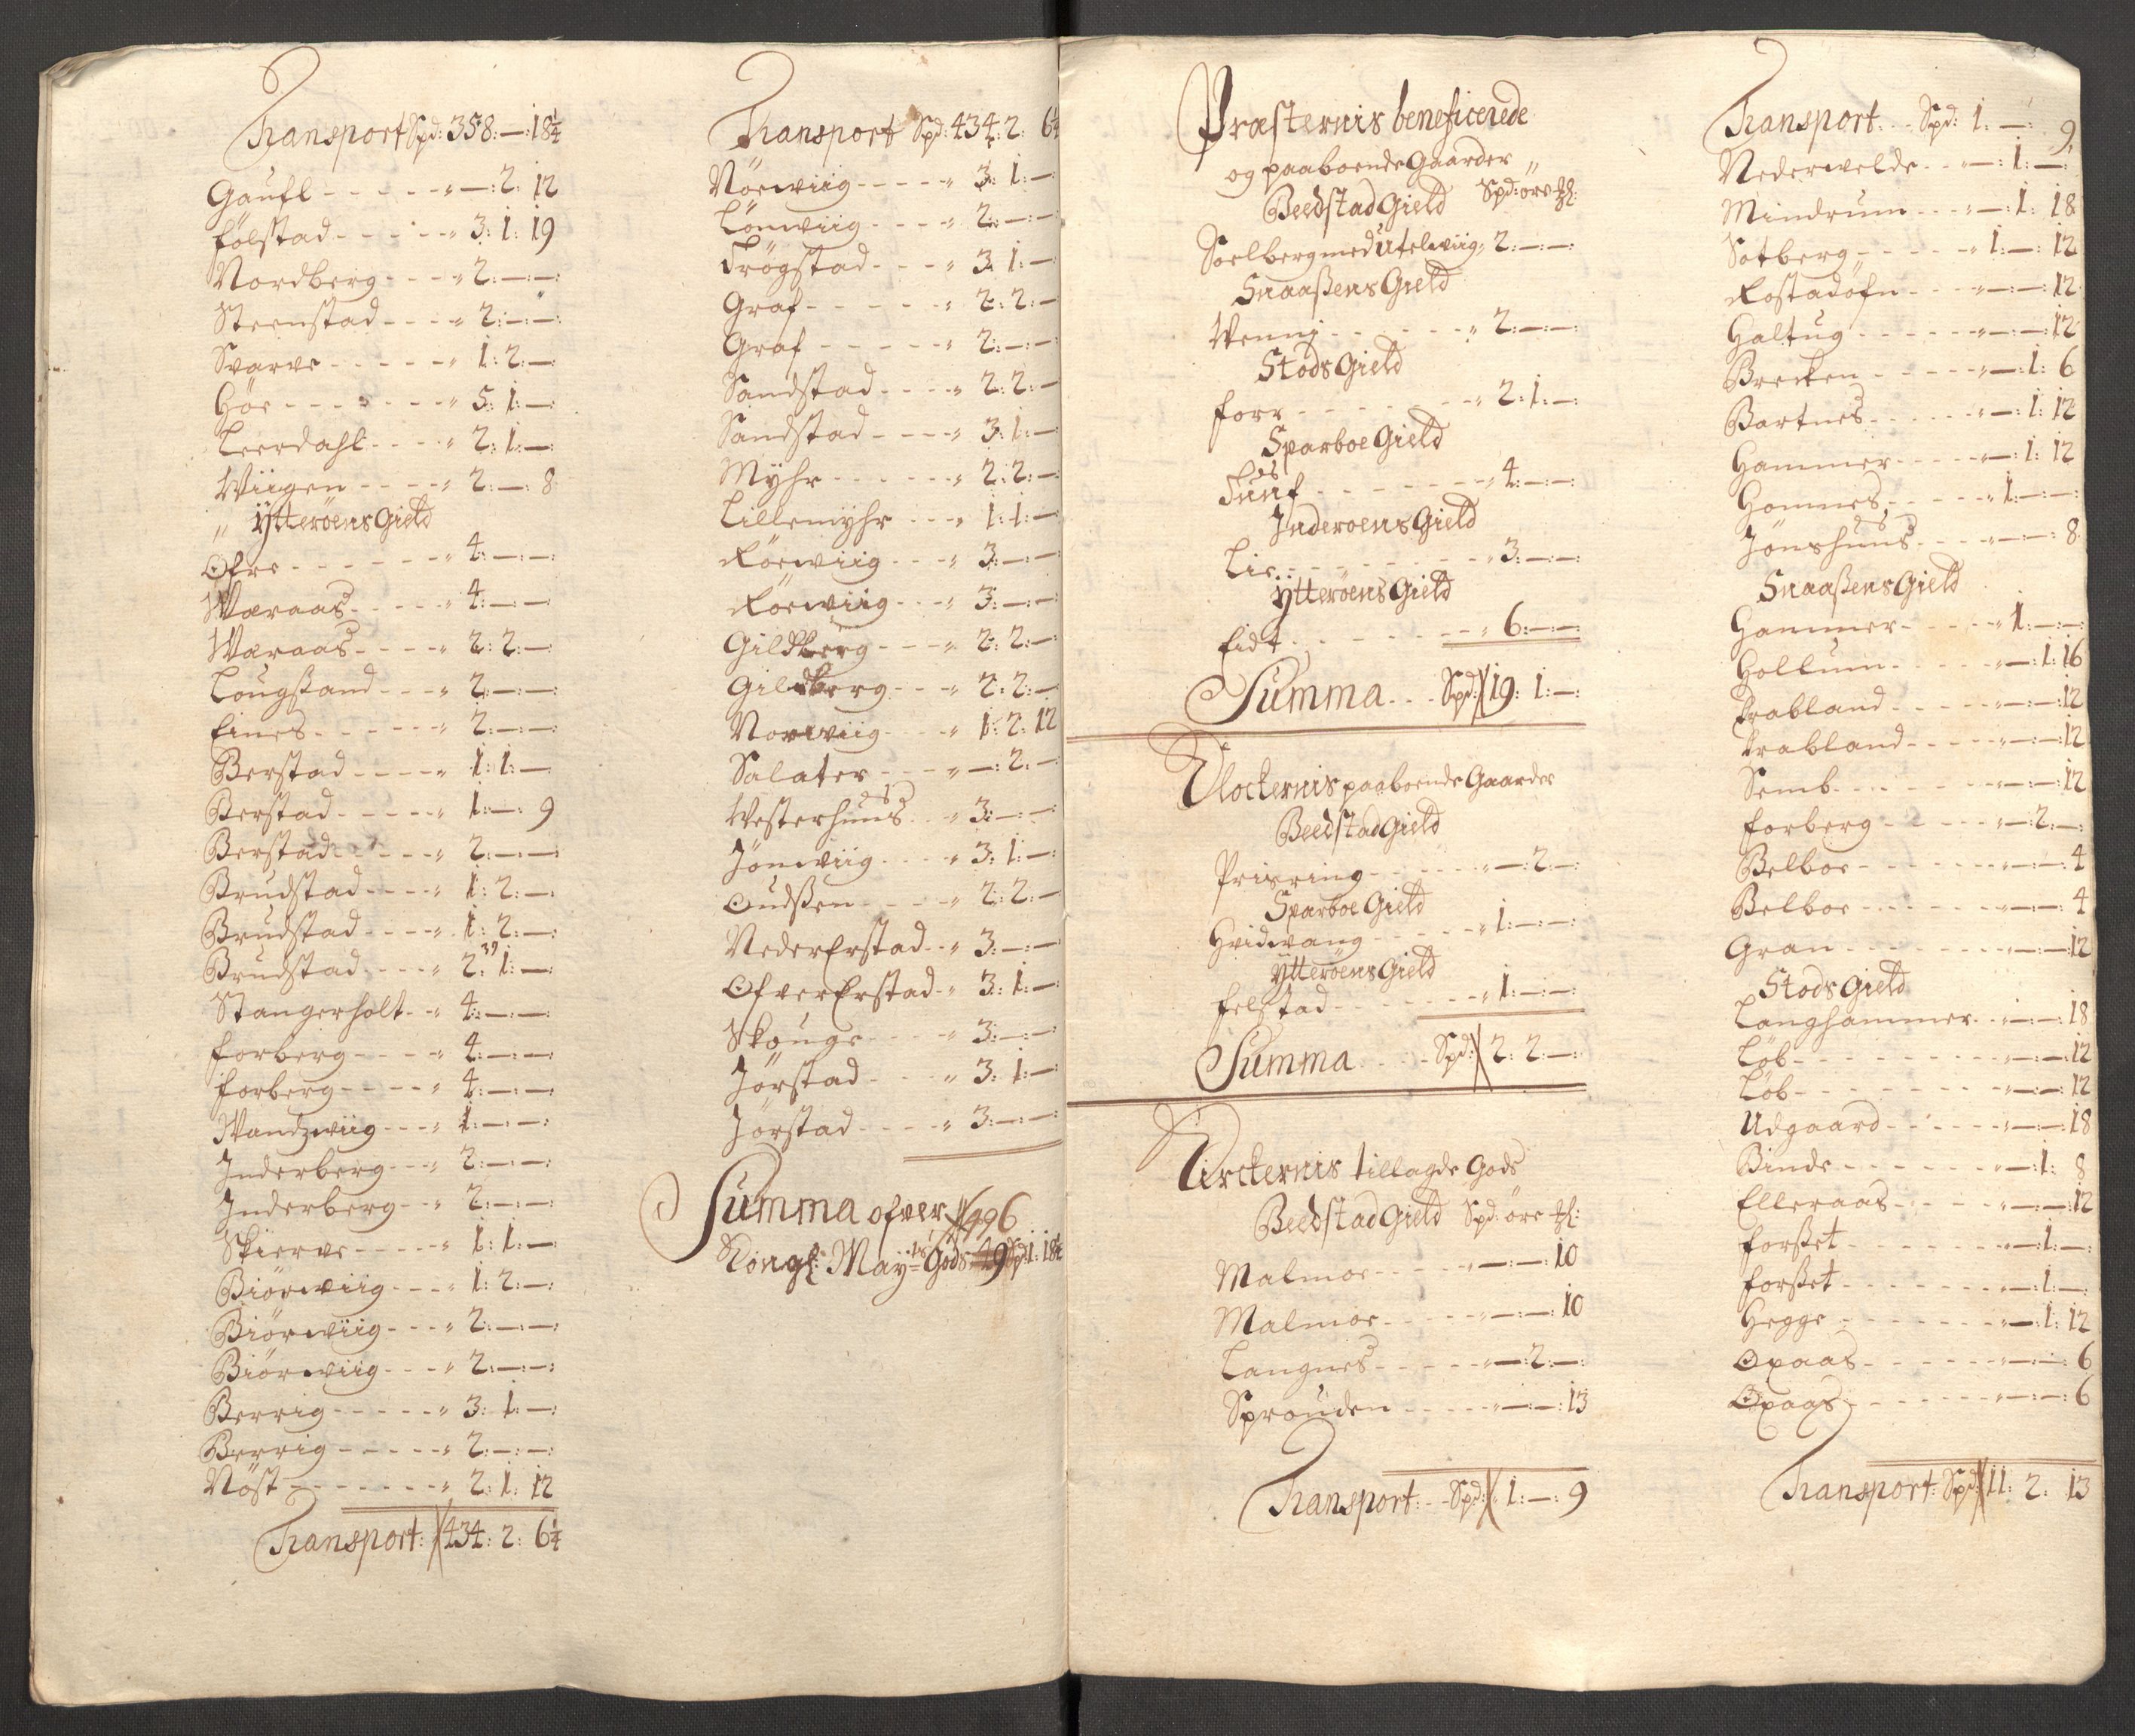 Transport Spd: 358: —: 18¼
Gaufl - - - - - „ —: 2: 12
Følstad - - - - - „ 3: 1: 19
Nordberg - - - - „ 2: —: —:
Steenstad - - - - „ 2: —: —:
Svarve - - - - - „ 1: 2: —:
Høe - - - - - - „ 5: 1: —:
Leerdahl - - - - „ 2: 1: —:
Wiigen - - - - „ 2: —: 8
„ Ytterøens Gield
Øfre - - - - - - „ 4: —: —:
Wæraas - - - - - „ 4: —: —:
Wæraas - - - - „ 2: 2: —:
Lougstand - - - „ 2: —: —:
Eines - - - - - - „ 2: —: —:
Berstad - - - - „ 1: 1: —:
Berstad - - - - - „ 1: —: 9
Berstad - - - - - „ 2: —: —:
Brudstad - - - - „ 1: 2: —:
Brudstad - - - - „ 1: 2: —:
Brudstad - - - - „ 2: 1: —:
Stangerholt - - „ 4: —: —:
Forberg - - - - „ 4: —: —:
Forberg - - - - - „ 4: —: —:
Wandzwiig - - - „ 1: —: —:
Inderberg - - - „ 2: —: —:
Inderberg - - „ 2: —: —:
Skierve - - - - - „ 1: 1: —:
Biørwiig - - - - „ 1: 2: —:
Biørwiig - - - - „ 2: —: —:
Biørwiig - - - - „ 2: —: —:
Berrig - - - - - „ 3: 1: —:
Berrig - - - - - „ 2: —: —:
Nøst - - - - - - - „ 2: 1: 12
Transport: 434: 2: 6¼
Transport Spd: 434: 2: 6¼
Nørwiig - - - - - „ 3: 1: —:
Lønwiig - - - - „ 2: —: —:
Trøgstad - - - - „ 3: 1: —:
Graf - - - - - - „ 2: 2: —
Graf - - - - - - „ 2: —: —:
Sandstad - - - - „ 2: 2: —
Sandstad - - - - „ 3: 1: —:
Myhr - - - - - - „ 2: 2: —
Lillemyhr - - - „ 1: 1: —
Rørwiig - - - - „ 3: —: —:
Rørwiig - - - - „ 3: —: —:
Gildberg - - - - „ 2: 2: —:
Gildberg - - - - „ 2: 2: —:
Norwiig - - - - „ 1: 2: 12
Salater - - - - „ —: 2: —
Westerhuus - - „ 3: —: —:
Jønwiig - - - - „ 3: 1: —:
Oudßen - - - - „ 2: 2: —
Neder Erstad - - „ 3: —: —
Ofver Erstad - - „ 3: 1: —:
Skouge - - - - „ 3: —: —:
Jørstad - - - - „ 3: 1: —:
Jørstad - - - - „ 3: —: —:
Summa ofver 496
Kongl: May:ts Gods Spd: 1: 18¼
Præsternis beneficerede
og paaboende Gaarder „
Beedstad Gield Spd: öre ₰:
Soelberg med Utelwiig „ 2: —: —:
Snaaßens Gield
Wenni - - - - - - „ 2: —: —:
Støds Gield
Forr - - - - - - - - „ 2: 1: —:
Sparboe Gield
Tuuf - - - - - - - „ 4: —: —:
Inderøens Gield
Lie - - - - - - - - „ 3: —: —:
Ytterøens Gield
Eidt - - - - - - - - „ 6: —: —:
Summa - - - Spd: 19: 1: —:
Klockernis paaboende Gaarder
Beedstad Gield
Prisring - - - - - - „ —: 2: —:
Sparboe Gield
Hvidwang - - - - - „ 1: —: —:
Ytterøens Gield
Felstad - - - - - - - „ 1: —: —:
Summa - - - - Spd: 2: 2: —:
Kirckernis tillagde Gods
Beedstad Gield Spd: öre ₰:
Malmoe - - - - - „ —: —: 10
Malmoe - - - - - „ —: —: 10
Langnes - - - - - „ —: 2: —:
Sprouden - - - - - „ —: —: 13
Transport: - - Spd: 1: —: 9
Transport: - - Spd: 1: —: 9
Nederwelde - - - „ —: 1: —:
Mindrum - - - - „ —: 1: 18
Sotberg - - - - - - „ 1: —: 12
Rostadöfn - - - - „ —: —: 12
Haltug - - - - - - „ —: —: 12
Brecken - - - - - „ —: 1: 6
Bartnes - - - - - „ —: 1: 12
Hammer - - - - - „ —: 1: 12
Hommes - - - - - „ 1: —: —:
Jønshuus - - - - - „ —: —: 8
Snaaßens Gield
Hammer - - - - - „ 1: —: —:
Hollum - - - - - - „ —: 1: 16
Trabland - - - - - „ —: —: 12
Trabland - - - - - „ —: —: 12
Semb - - - - - - - „ —: —: 12
Forberg - - - - - - „ —: 2: —:
Belboe - - - - - - - „ —: —: 4
Belboe - - - - - - - „ —: —: 4
Gran - - - - - - - - „ —: —: 12
Støds Gield
Langhammer - - „ —: —: 18
Løb - - - - - - - - - „ —: —: 12
Løb - - - - - - - - - „ —: —: 12
Udgaard - - - - - - „ —: —: 18
Binde - - - - - - - „ —: 1: 8
Elleraas - - - - - - „ —: —: 12
Forßet - - - - - - - „ —: 1: —:
Forßet - - - - - - - „ —: 1: —:
Hegge - - - - - - - „ —: 1: 12
Opaas - - - - - - - „ —: —: 6
Opaas - - - - - - - „ —: —: 6
Transport: Spd: 11: 2: 13